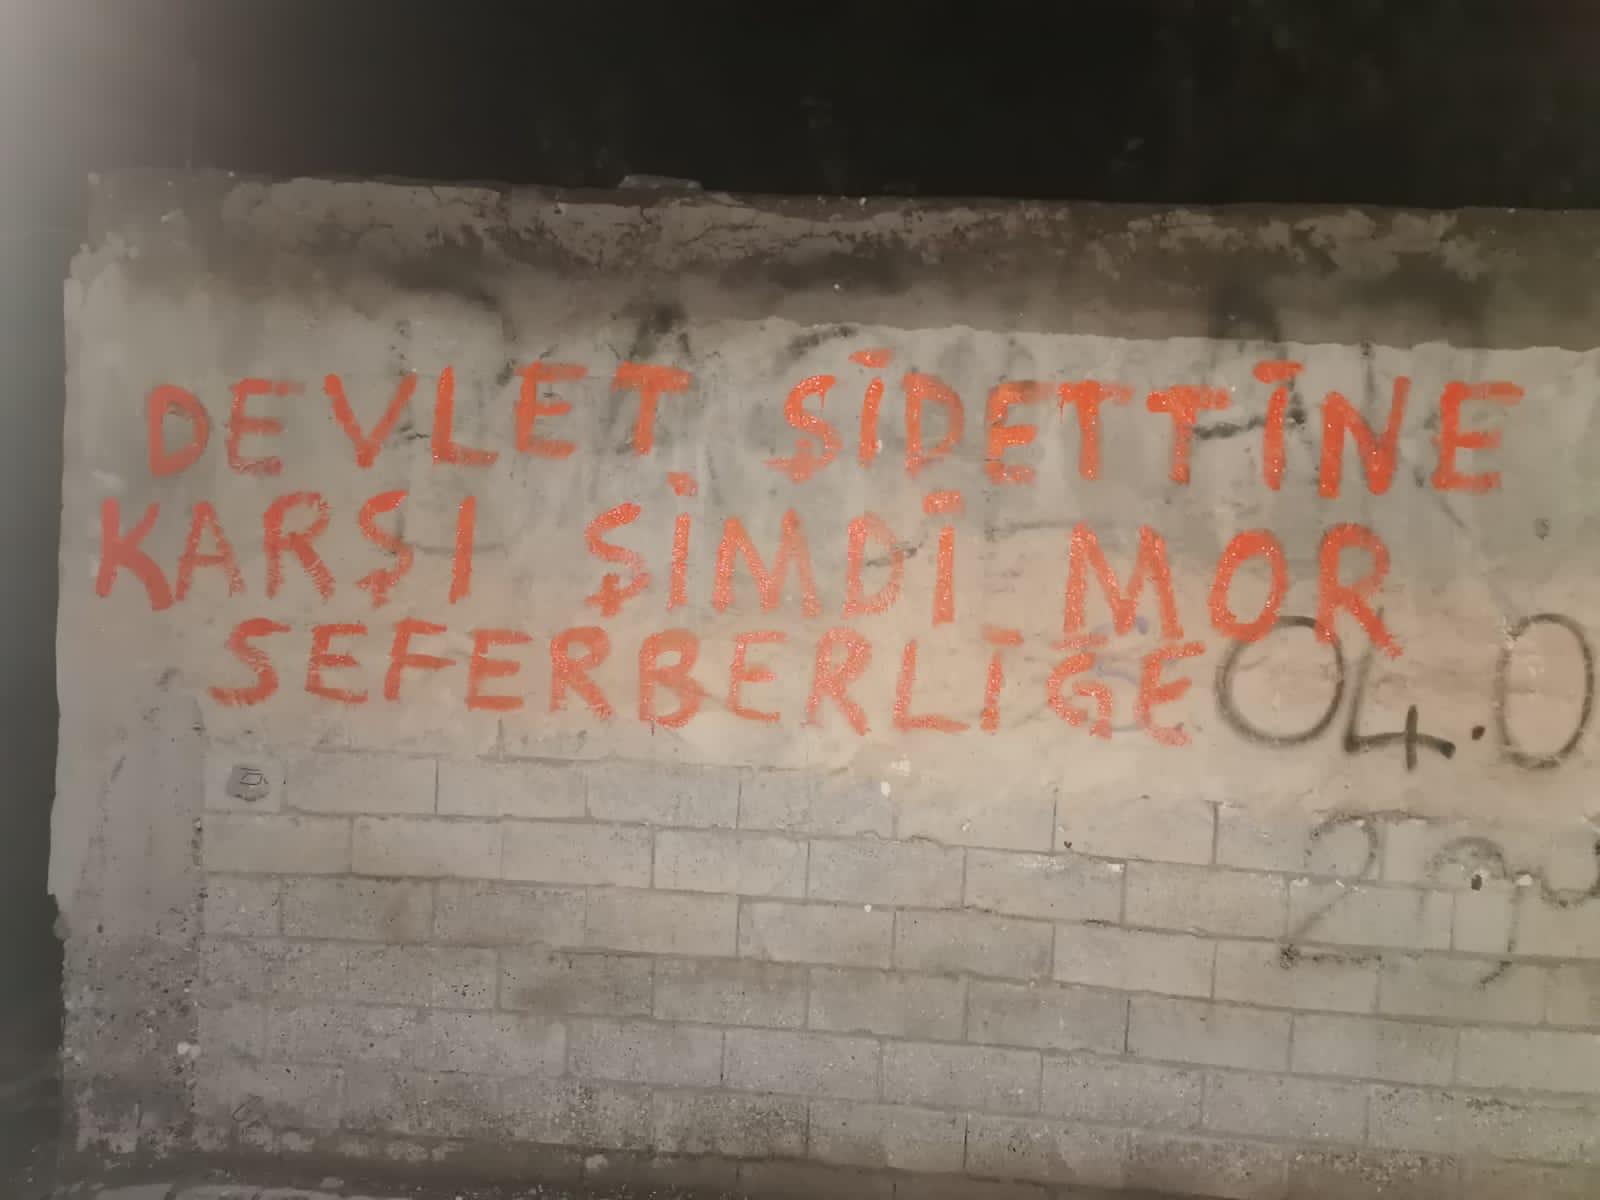 DEVLET ŞİDETTİNE
KARŞI ŞİMDİ MOR
SEFERBERLİĞE
04.0